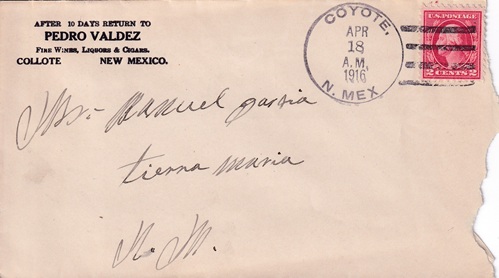 AFTER 10 DAYS RETURN TO
PEDRO VALDEZ
FINE WINES, LIQUORS & CIGARS.
COLLOTE NEW MEXICO.
COYOTE,
APR
18
A.M,
1916
N. MEX
U.S. POSTAGE
2 CENTS 2
Manuel garsia
tierra maria
N. M.